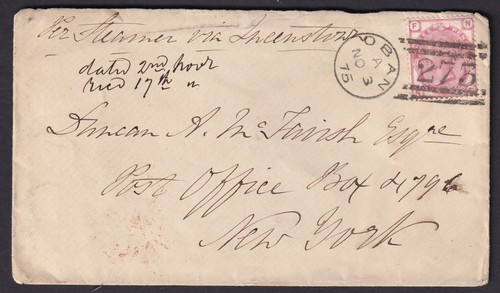 Per Steamer via Queenstown
dated 2nd Novr
recd 17th "
OBAN
A
NO 3
75
F N
275
Duncan A. McTavish Esqre
Post Office Box 4796
New York